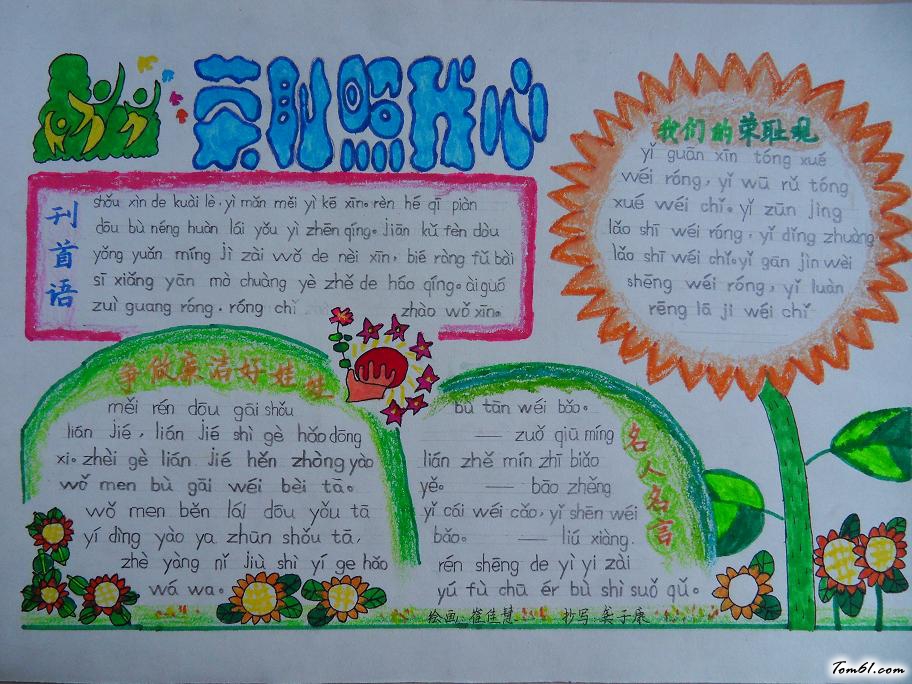 荣耻照我心
刊首语
shǒu xìn de kuài lè, yì mǎn měi yì kē xīn。rèn hé qī piàn
dōu bù néng huàn lái yǒu yì zhēn qíng。jiān kǔ fèn dòu
yǒng yuǎn míng jì zài wǒ de nèi xīn, bié ràng fǔ bài
sī xiǎng yān mò chuàng yè zhě de háo qíng。ài guó
zuì guang róng, róng chǐ zhào wǒ xīn。
我们的荣耻观
yǐ guān xīn tóng xué
wéi róng, yǐ wū rǔ tóng
xué wéi chǐ。yǐ zūn jìng
lǎo shī wéi róng, yǐ dǐng zhuàng
lǎo shī wéi chǐ。yǐ gān jìn wèi
shēng wéi róng, yǐ luàn
rēng lā jī wéi chǐ
争做廉洁好娃娃
měi rén dōu gāi shǒu
lián jié, lián jié shì gè hǎo dōng
xi。zhèi gè lián jié hěn zhòng yào
wǒ men bù gāi wéi bèi tā。
wǒ men běn lái dōu yǒu tā
yí dìng yào ya zhūn shǒu tā,
zhè yàng nǐ jiù shì yí ge hǎo
wá wa。
名人名言
bù tān wéi bǎo。
—— zuǒ qiū míng
lián zhě mín zhī biǎo
yě。 —— bāo zhěng
yǐ cái wéi cǎo, yǐ shēn wéi
bǎo。 —— liú xiàng.
rén shēng de yì yì zài
yú fù chū ér bù shì suǒ qǔ。
绘画:崔佳慧 抄写:龚子康
Tom61.com